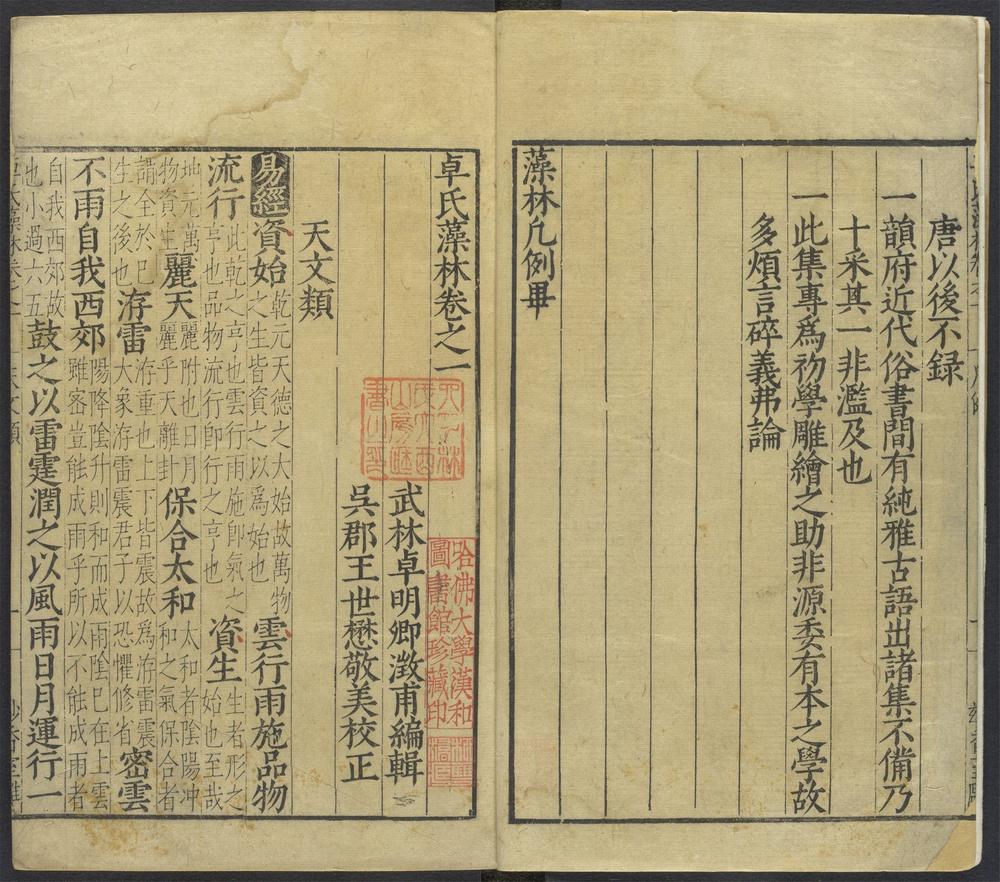 唐以後不録
一韻府近代俗書間有純雅古語出諸集不備乃
十采其一非濫及也
一此集專爲初學雕繪之助非源委有本之學故
多煩言碎義弗論
藻林凡例畢
卓氏藻林卷之一
武林卓明卿澂甫編輯
吳郡王世懋敬美校正
哈佛大學漢和
圖書館珍藏印
天文類
易經資始乾元天德之大始故萬物之生皆資之以爲始也雲行雨施品物
流行此乾之亨也雲行雨施卽氣之亨也品物流行卽行之亨也資生生者形之始也至哉
地元萬物資生麗天麗附也日月麗乎天離卦保合太和太和者陰陽冲和之氣保合者
謂全於已生之後也洊雷洊重也上下皆震故爲洊雷震大象洊雷震君子以恐懼修省密雲
不雨自我西郊陽降陰升則和而成雨陰巳在上雲雖密豈能成雨乎所以不能成雨者
自我西郊故也小過六五鼓之以雷霆潤之以風雨日月運行一